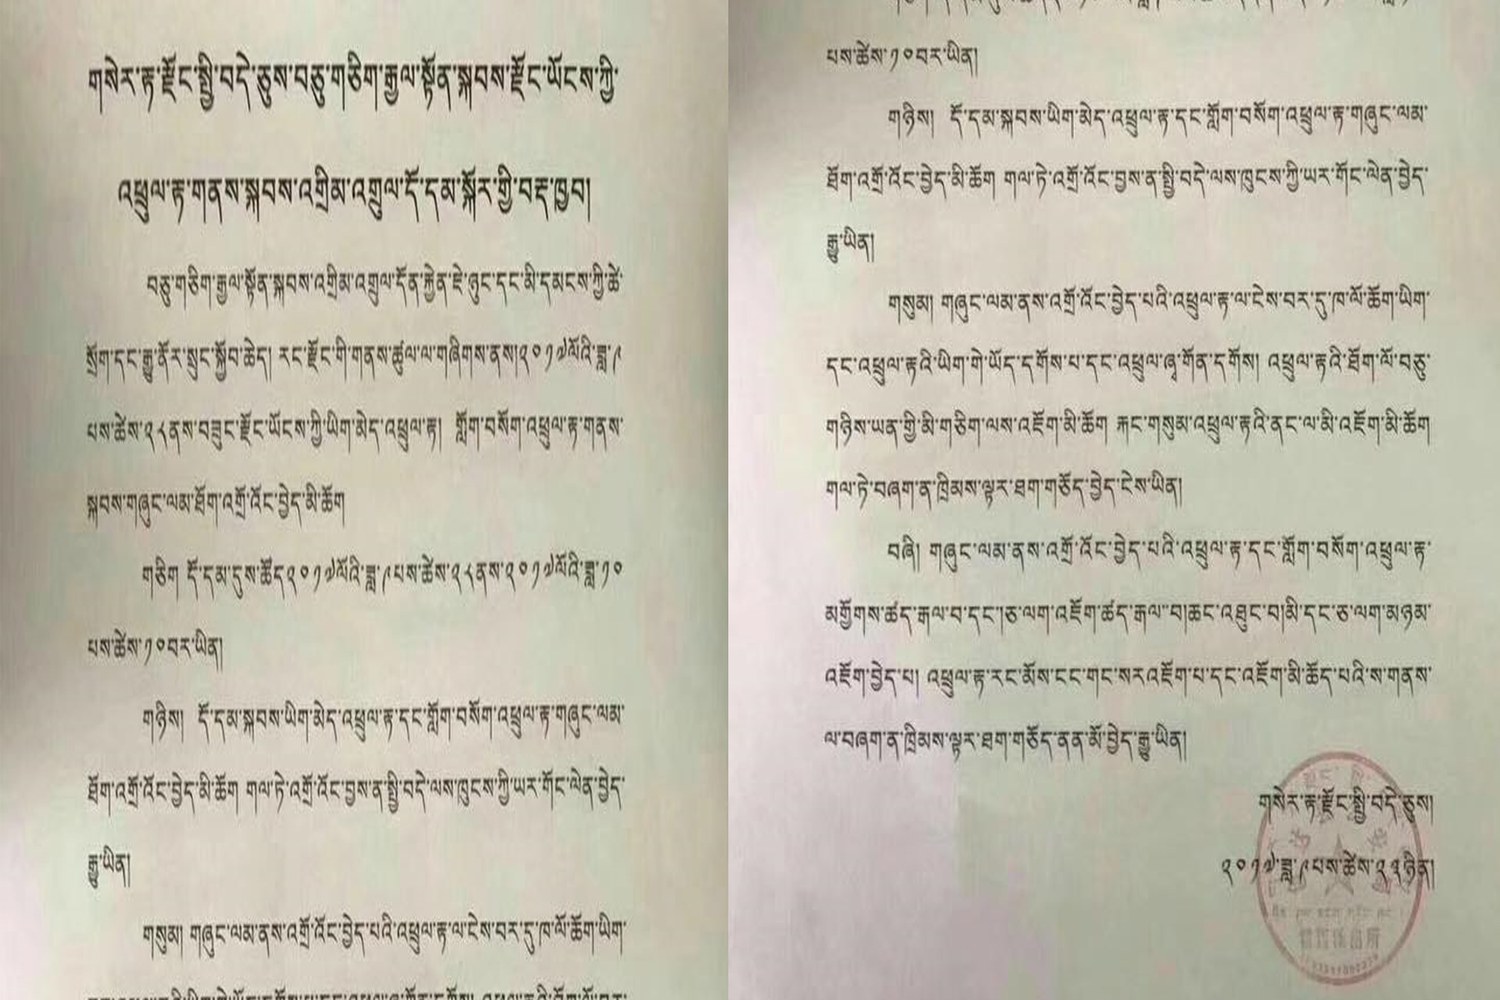 གསེར་རྟ་རྫོང་སྤྱི་བདེ་ཅུས་བཅུ་གཅིག་རྒྱལ་སྟོན་སྐབས་རྫོང་ཡོངས་ཀྱི་
འཕྲུལ་རྟ་གནས་སྐབས་འགྲིམ་འགྲུལ་དོ་དམ་སྐོར་གྱི་བརྡ་ཁྱབ།
བཅུ་གཅིག་རྒྱལ་སྟོན་སྐབས་འགྲིམ་འགྲུལ་དོན་རྐྱེན་ཇེ་ཉུང་དང་མི་དམངས་ཀྱི་ཚེ་
སྲོག་དང་རྒྱུ་ནོར་སྲུང་སྐྱོབ་ཆེད། རང་རྫོང་གི་གནས་ཚུལ་ལ་གཞིགས་ནས།༢༠༡༧ལོའི་ཟླ་༩
པས་ཚེས་༢༨ནས་བཟུང་རྫོང་ཡོངས་ཀྱི་ཡིག་མེད་འཕྲུལ་རྟ། གློག་བསོག་འཕྲུལ་རྟ་གནས་
སྐབས་གཞུང་ལམ་ཐོག་འགྲོ་འོང་བྱེད་མི་ཆོག
གཅིག དོ་དམ་དུས་ཚོད༢༠༡༧ལོའི་ཟླ་༩པས་ཚེས་༢༨ནས་༢༠༡༧ལོའི་ཟླ་༡༠
པས་ཚེས་༡༠བར་ཡིན།
གཉིས། དོ་དམ་སྐབས་ཡིག་མེད་འཕྲུལ་རྟ་དང་གློག་བསོག་འཕྲུལ་རྟ་གཞུང་ལམ་
ཐོག་འགྲོ་འོང་བྱེད་མི་ཆོག གལ་ཏེ་འགྲོ་འོང་བྱས་ན་སྤྱི་བདེ་ལས་ཁུངས་ཀྱི་ཡར་གོང་ལེན་བྱེད་
རྒྱུ་ཡིན།
གསུམ། གཞུང་ལམ་ནས་འགྲོ་འོང་བྱེད་པའི་འཕྲུལ་རྟ་ལ་ངེས་བར་དུ་ཁ་ལོ་ཆོག་ཡིག་
པས་ཚེས་༡༠བར་ཡིན།
གཉིས། དོ་དམ་སྐབས་ཡིག་མེད་འཕྲུལ་རྟ་དང་གློག་བསོག་འཕྲུལ་རྟ་གཞུང་ལམ་
ཐོག་འགྲོ་འོང་བྱེད་མི་ཆོག གལ་ཏེ་འགྲོ་འོང་བྱས་ན་སྤྱི་བདེ་ལས་ཁུངས་ཀྱི་ཡར་གོང་ལེན་བྱེད་
རྒྱུ་ཡིན།
གསུམ། གཞུང་ལམ་ནས་འགྲོ་འོང་བྱེད་པའི་འཕྲུལ་རྟ་ལ་ངེས་བར་དུ་ཁ་ལོ་ཆོག་ཡིག་
དང་འཕྲུལ་རྟའི་ཡིག་གེ་ཡོད་དགོས་པ་དང་འཕྲུལ་ཞྭ་གོན་དགོས། འཕྲུལ་རྟའི་ཐོག་ལོ་བཅུ་
གཉིས་ཡན་གྱི་མི་གཅིག་ལས་འཇོག་མི་ཆོག རྐང་གསུམ་འཕྲུལ་རྟའི་ནང་ལ་མི་འཇོག་མི་ཆོག
གལ་ཏེ་བཞག་ན་ཁྲིམས་ལྟར་ཐག་གཅོད་བྱེད་ངེས་ཡིན།
བཞི། གཞུང་ལམ་ནས་འགྲོ་འོང་བྱེད་པའི་འཕྲུལ་རྟ་དང་གློག་བསོག་འཕྲུལ་རྟ་
མགྱོགས་ཚད་རྒལ་བ་དང་།ཅ་ལག་འཇོག་ཚད་རྒལ་བ།ཆང་འཐུང་བ།མི་དང་ཅ་ལག་མཉམ་
འཇོག་བྱེད་པ། འཕྲུལ་རྟ་རང་མོས་ངང་གང་སར་འཇོག་པ་དང་འཇོག་མི་ཆོད་པའི་ས་གནས་
ལ་བཞག་ན་ཁྲིམས་ལྟར་ཐག་གཅོད་ནན་མོ་བྱེད་རྒྱུ་ཡིན།
གསེར་རྟ་རྫོང་སྤྱི་བདེ་ཅུས།
༢༠༡༧་ཟླ་༩པས་ཚེས་༢༢ཉིན།